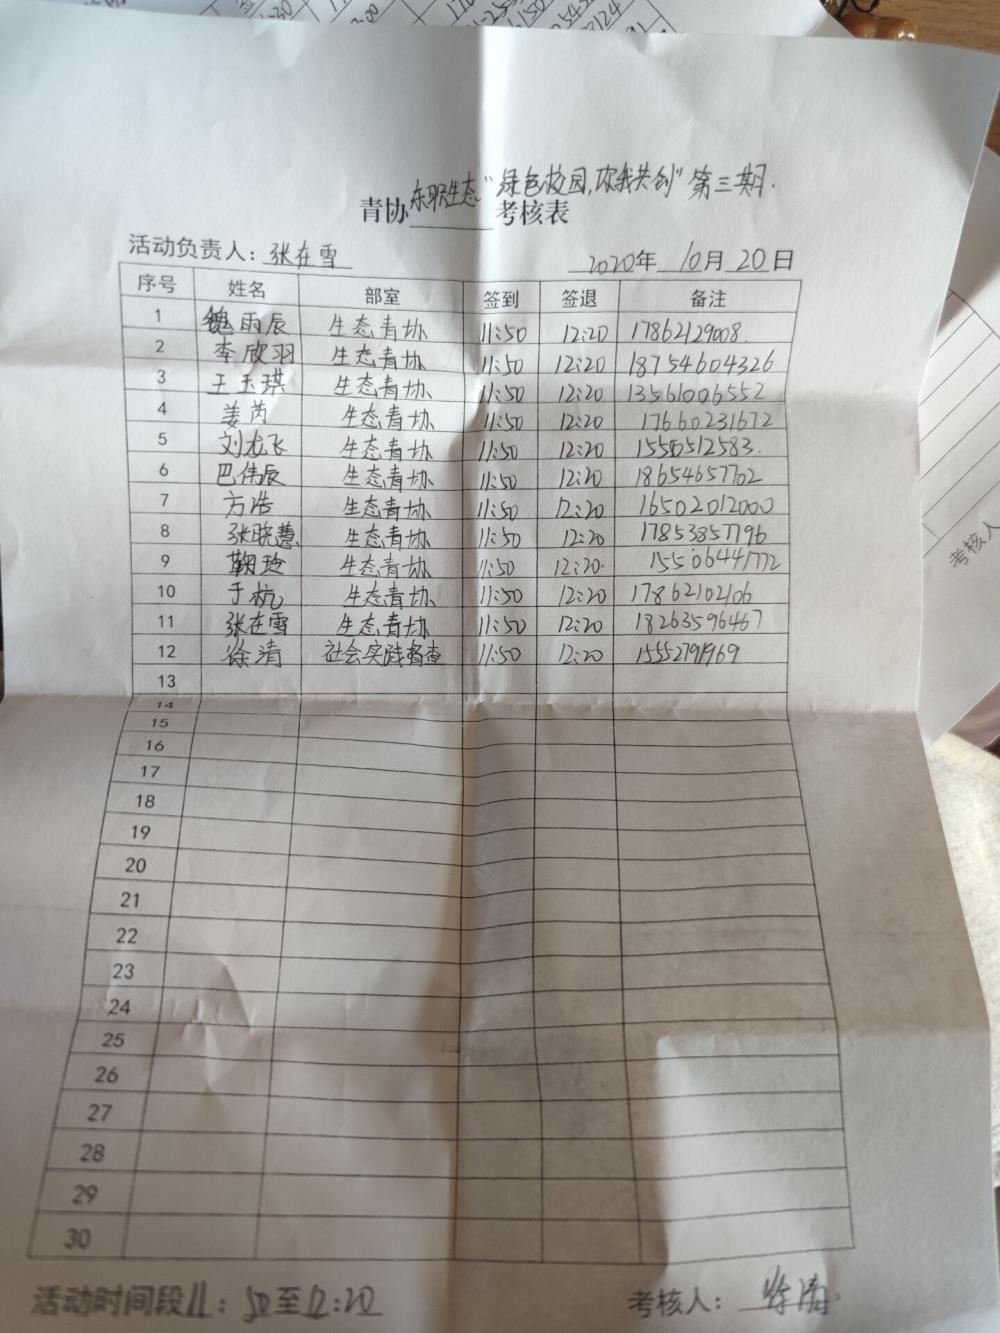 青协东职生态"绿色校园,你我共创"第三期.考核表
活动负责人：张在雪 2020年 10月 20日
序号 姓名 部室 签到 签退 备注
1 魏雨辰 生态青协 11:50 12:20 17862129008.
2 李欣羽 生态青协 11:50 12:20 18754604326
3 王玉琪 生态青协 11:50 12:20 13561006552
4 姜芮 生态青协 11:50 12:20 17660231672
5 刘龙飞 生态青协 11:50 12:20
6 巴伟辰 生态青协 11:50 12:20 18654657702
7 方浩 生态青协 11:50 12:20 16502012000
8 张晓慧 生态青协 11:50 12:20 17853857796
9 鞠玲 生态青协 11:50 12:20. 15506441772
10 于杭 生态青协 11:50 12:20 17862102106
11 张在雪 生态青协 11:50 12:20 18263596467
12 徐清 社会实践督查 11:50 12:20 15552791969
13
14
15
16
17
18
19
20
21
22
23
24
25
26
27
28
29
30
活动时间段11：50至12:20 考核人：徐清.
考核人